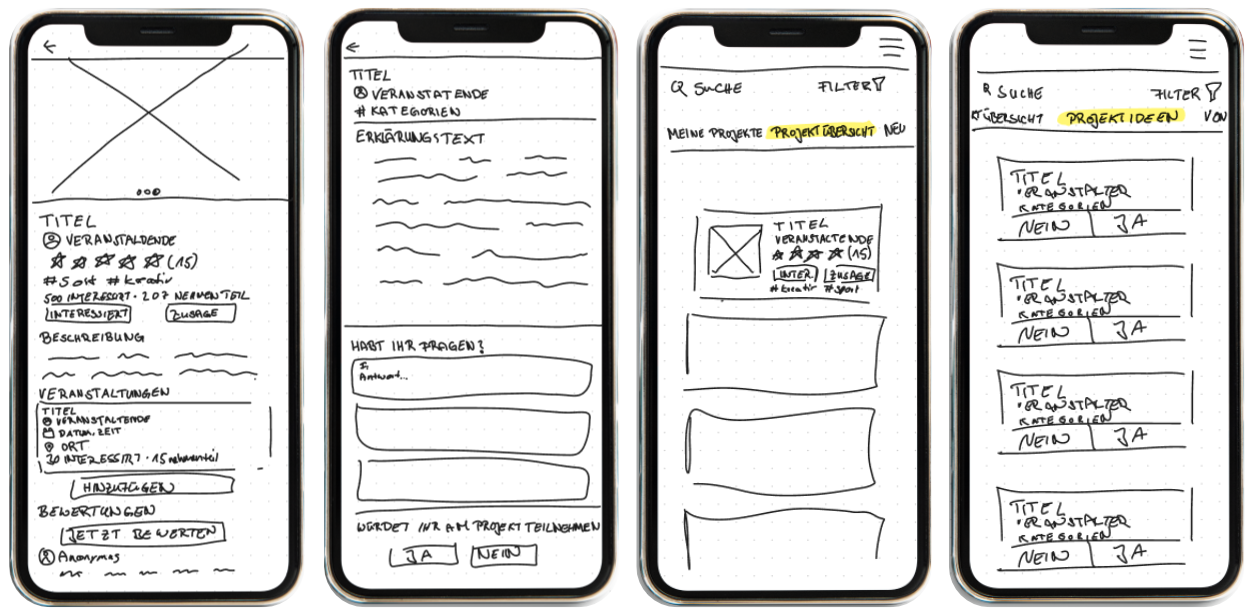 TITEL
VERANSTALDENDE
(15)
#Sort #kreativ
500 INTERESSIRT · 207 NEHMEN TEIL
INTERESSIERT ZUSAGE
BESCHREIBUNG
VERANSTALTUNGEN
TITEL
VERANSTALTENDE
DATUM, ZEIT
ORT
30 INTERESSIRT · 15 nehmen teil
HINZUFÜGEN
BEWERTUNGEN
JETZT BEWERTEN
Anonymas
TITEL
VERANSTATENDE
# KATEGORIEN
ERKLÄRUNGSTEXT
HABT IHR FRAGEN?
Antwort...
WERDET IHR AM PROJEKT TEILNEHMEN
JA NEIN
SUCHE FILTER
MEINE PROJEKTE PROJEKTÜBERSICHT NEU
TITEL
VERANSTALTENDE
(15)
INTER. ZUSAGE
#kreativ #sport
SUCHE FILTER
KTÜBERSICHT PROJEKTIDEEN VON
TITEL
VERANSTALTER
KATEGORIEN
NEIN JA
TITEL
VERANSTALTER
KATEGORIEN
NEIN JA
TITEL
VERANSTALTER
KATEGORIEN
NEIN JA
TITEL
VERANSTALTER
KATEGORIEN
NEIN JA